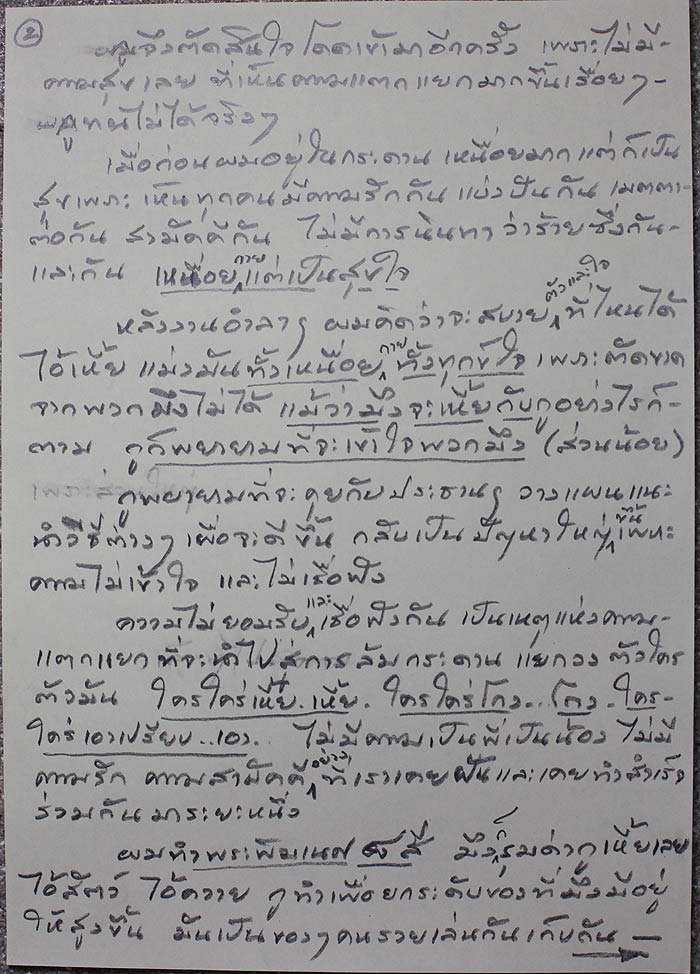 ②
ผมจึงตัดสินใจโดดเข้ามาอีกครั้ง เพราะไม่มี-
ความสุขเลย ที่เห็นความแตกแยกมากขึ้นเรื่อยๆ-
ผมทนไม่ได้จริงๆ
เมื่อก่อนผมอยู่ในกระดาน เหนื่อยมาก แต่ก็เป็น
สุขเพราะ เห็นทุกคนมีความรักกัน แบ่งปันกัน เมตตา-
ต่อกัน สามัคคีกัน ไม่มีการนินทา ว่าร้ายซึ่งกัน-
และกัน เหนื่อยกายแต่เป็นสุขใจ
หลังงานอำลาๆ ผมคิดว่าจะสบายตัวและใจ ที่ไหนได้
ไอ้เหี้ย แม่งมันทั้งเหนื่อยกาย ทั้งทุกข์ใจ เพราะตัดขาด
จากพวกมึงไม่ได้ แม้ว่ามึงจะเหี้ยกับกูอย่างไรก็-
ตาม กูก็พยายามที่จะเข้าใจพวกมึง (ส่วนน้อย)
กูพยายามที่จะคุยกับประธานๆ วางแผนแนะ
นำวิธีต่างๆ เพื่อจะดีขึ้น กลับเป็นปัญหาใหญ่ขึ้น เพราะ
ความไม่เข้าใจ และไม่เชื่อฟัง
ความไม่ยอมรับและเชื่อฟังกัน เป็นเหตุแห่งความ-
แตกแยก ที่จะนำไปสู่การล้มกระดาน แยกวง ตัวใคร
ตัวมัน ใครใคร่เหี้ย..เหี้ย. ใครใคร่โกง...โกง. ใคร-
ใคร่เอาเปรียบ..เอา.. ไม่มีความเป็นพี่เป็นน้อง ไม่มี
ความรัก ความสามัคคีอย่างที่เราเคยฝันและเคยทำสำเร็จ
ร่วมกันมาระยะหนึ่ง
ผมทำพระพิฆเนศ สี มึงก็รุมด่ากู เหี้ยเลย
ไอ้สัตว์ ไอ้ควาย กูทำเพื่อยกระดับของที่มึงมีอยู่
ให้สูงขึ้น มันเป็นของๆคนรวยเล่นกัน เก็บกัน